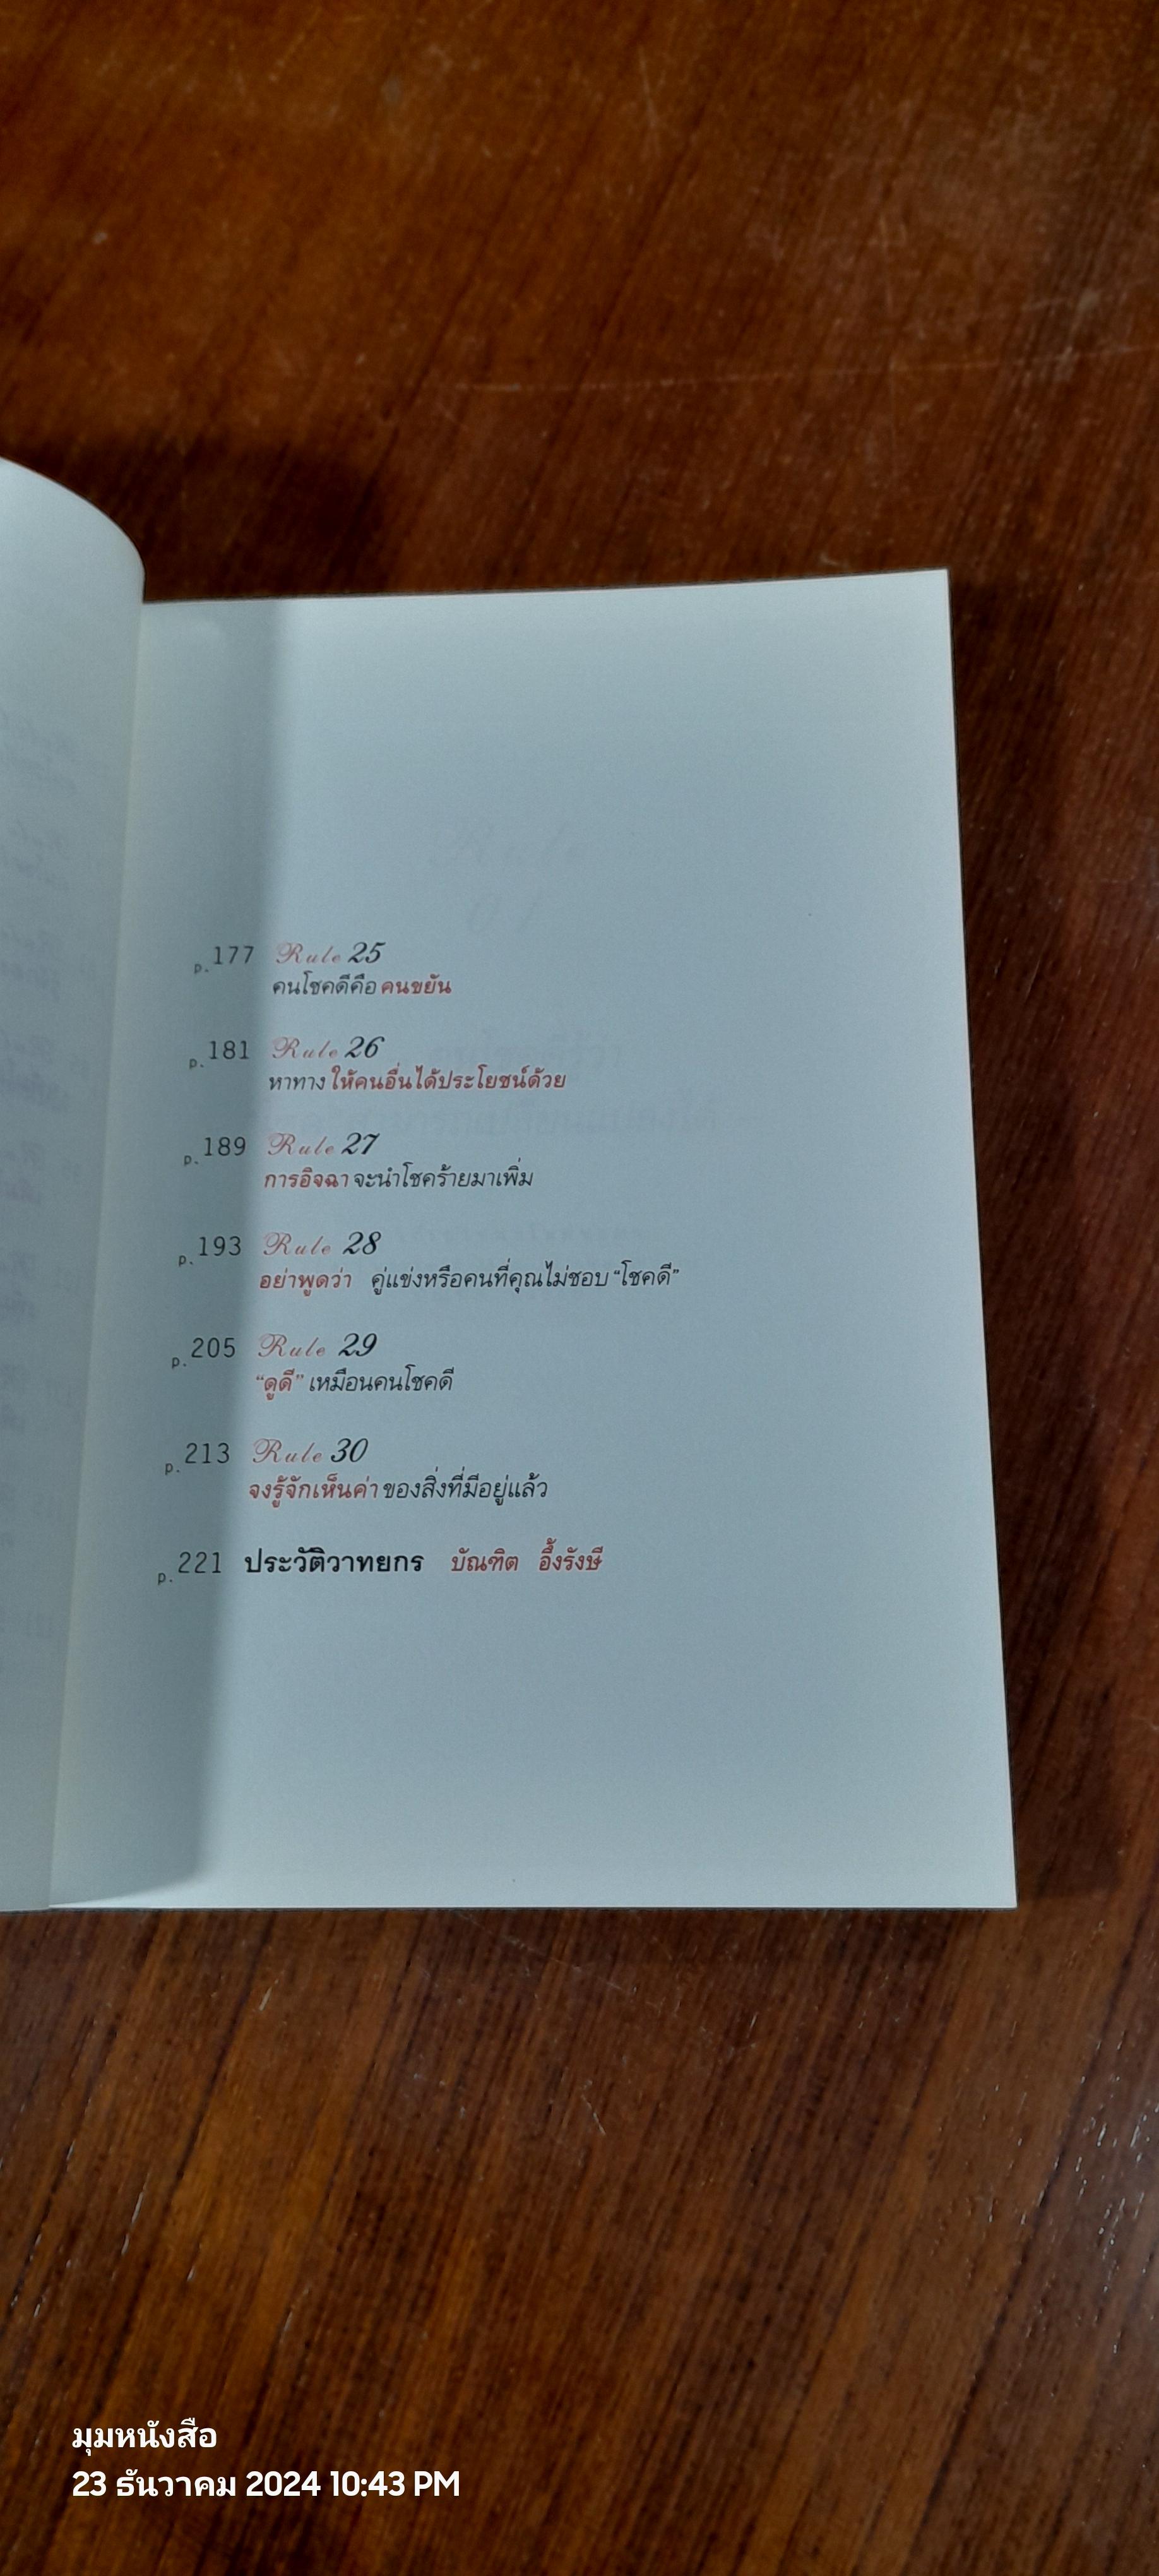 p.177 Rule 25
คนโชคดีคือ คนขยัน
p.181 Rule 26
หาทาง ให้คนอื่นได้ประโยชน์ด้วย
p.189 Rule 27
การอิจฉา จะนำโชคร้ายมาเพิ่ม
p.193 Rule 28
อย่าพูดว่า คู่แข่งหรือคนที่คุณไม่ชอบ “โชคดี”
p.205 Rule 29
“ดูดี” เหมือนคนโชคดี
p.213 Rule 30
จงรู้จักเห็นค่า ของสิ่งที่มีอยู่แล้ว
p.221 ประวัติวาทยกร บัณฑิต อึ้งรังษี
มุมหนังสือ
23 ธันวาคม 2024 10:43 PM